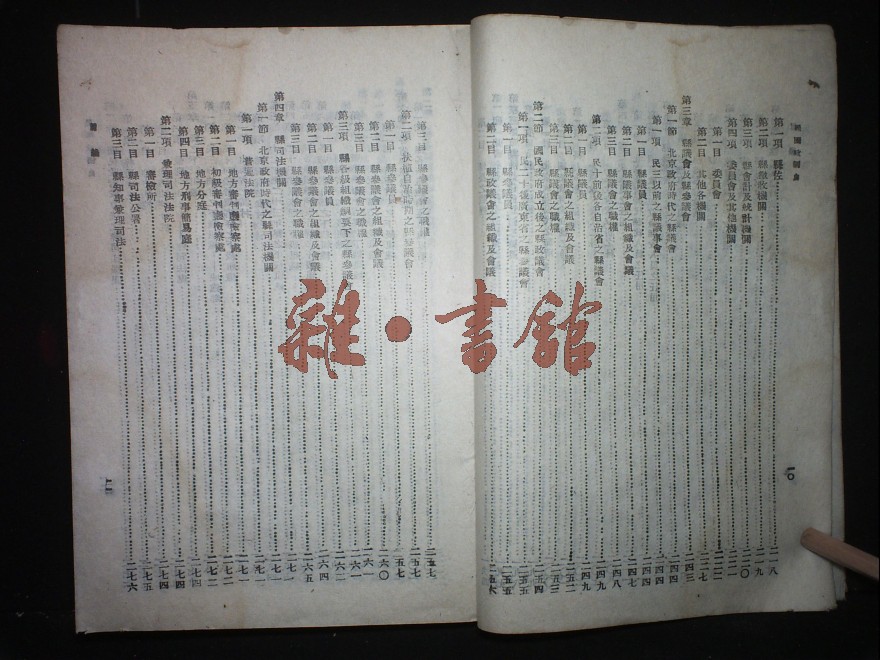 民國政制史
第一項 縣佐 二一八
第二項 縣徵收機關 二一九
第三項 縣會計及統計機關 二二〇
第四項 委員會及其他機關 二二一
第一目 委員會 二二三
第二目 其他各機關 二二七
第三章 縣議會及縣參議會 二四三
第一節 北京政府時代之縣議會 二四四
第一項 民三以前之縣議事會 二四四
第一目 縣議員
第二目 縣議事會之組織及會議 二四七
第三目 縣議會之職權 二四八
第二項 民十前後各自治省之縣議會 二四九
第一目 縣議員 二四九
第二目 縣議會之組織及會議 二五二
第三目 縣議會之職權 二五三
第二節 國民政府成立後之縣政議會 二五四
第一項 民二十後廣東省之縣參議會 二五五
第一目 縣參議員 二五五
第二目 縣政議會之組織及會議 二五六
一〇
第三目 縣參議會之職權 二五七
第二項 扶植自治時期之縣參議會 二五七
第一目 縣參議員 二五七
第二目 縣參議會之組織及會議 二六〇
第三目 縣參議會之職權 二六一
第三項 縣各級組織綱要下之縣參議會 二六一
第一目 縣參議員 二六二
第二目 縣參議會之組織及會議 二六四
第三目 縣參議會之職權 二六五
第四章 縣司法機關 二七一
第一節 北京政府時代之縣司法機關 二七一
第一項 普通法院 二七一
第一目 地方審判廳檢察處 二七二
第二目 初級審判廳檢察處 二七二
第三目 地方分庭
第四目 地方刑事簡易庭 二七四
第二項 兼理司法法院 二七四
第一目 審檢所 二七四
第二目 縣司法公署 二七五
第三目 縣知事兼理司法 二七六
一一
雜·書館